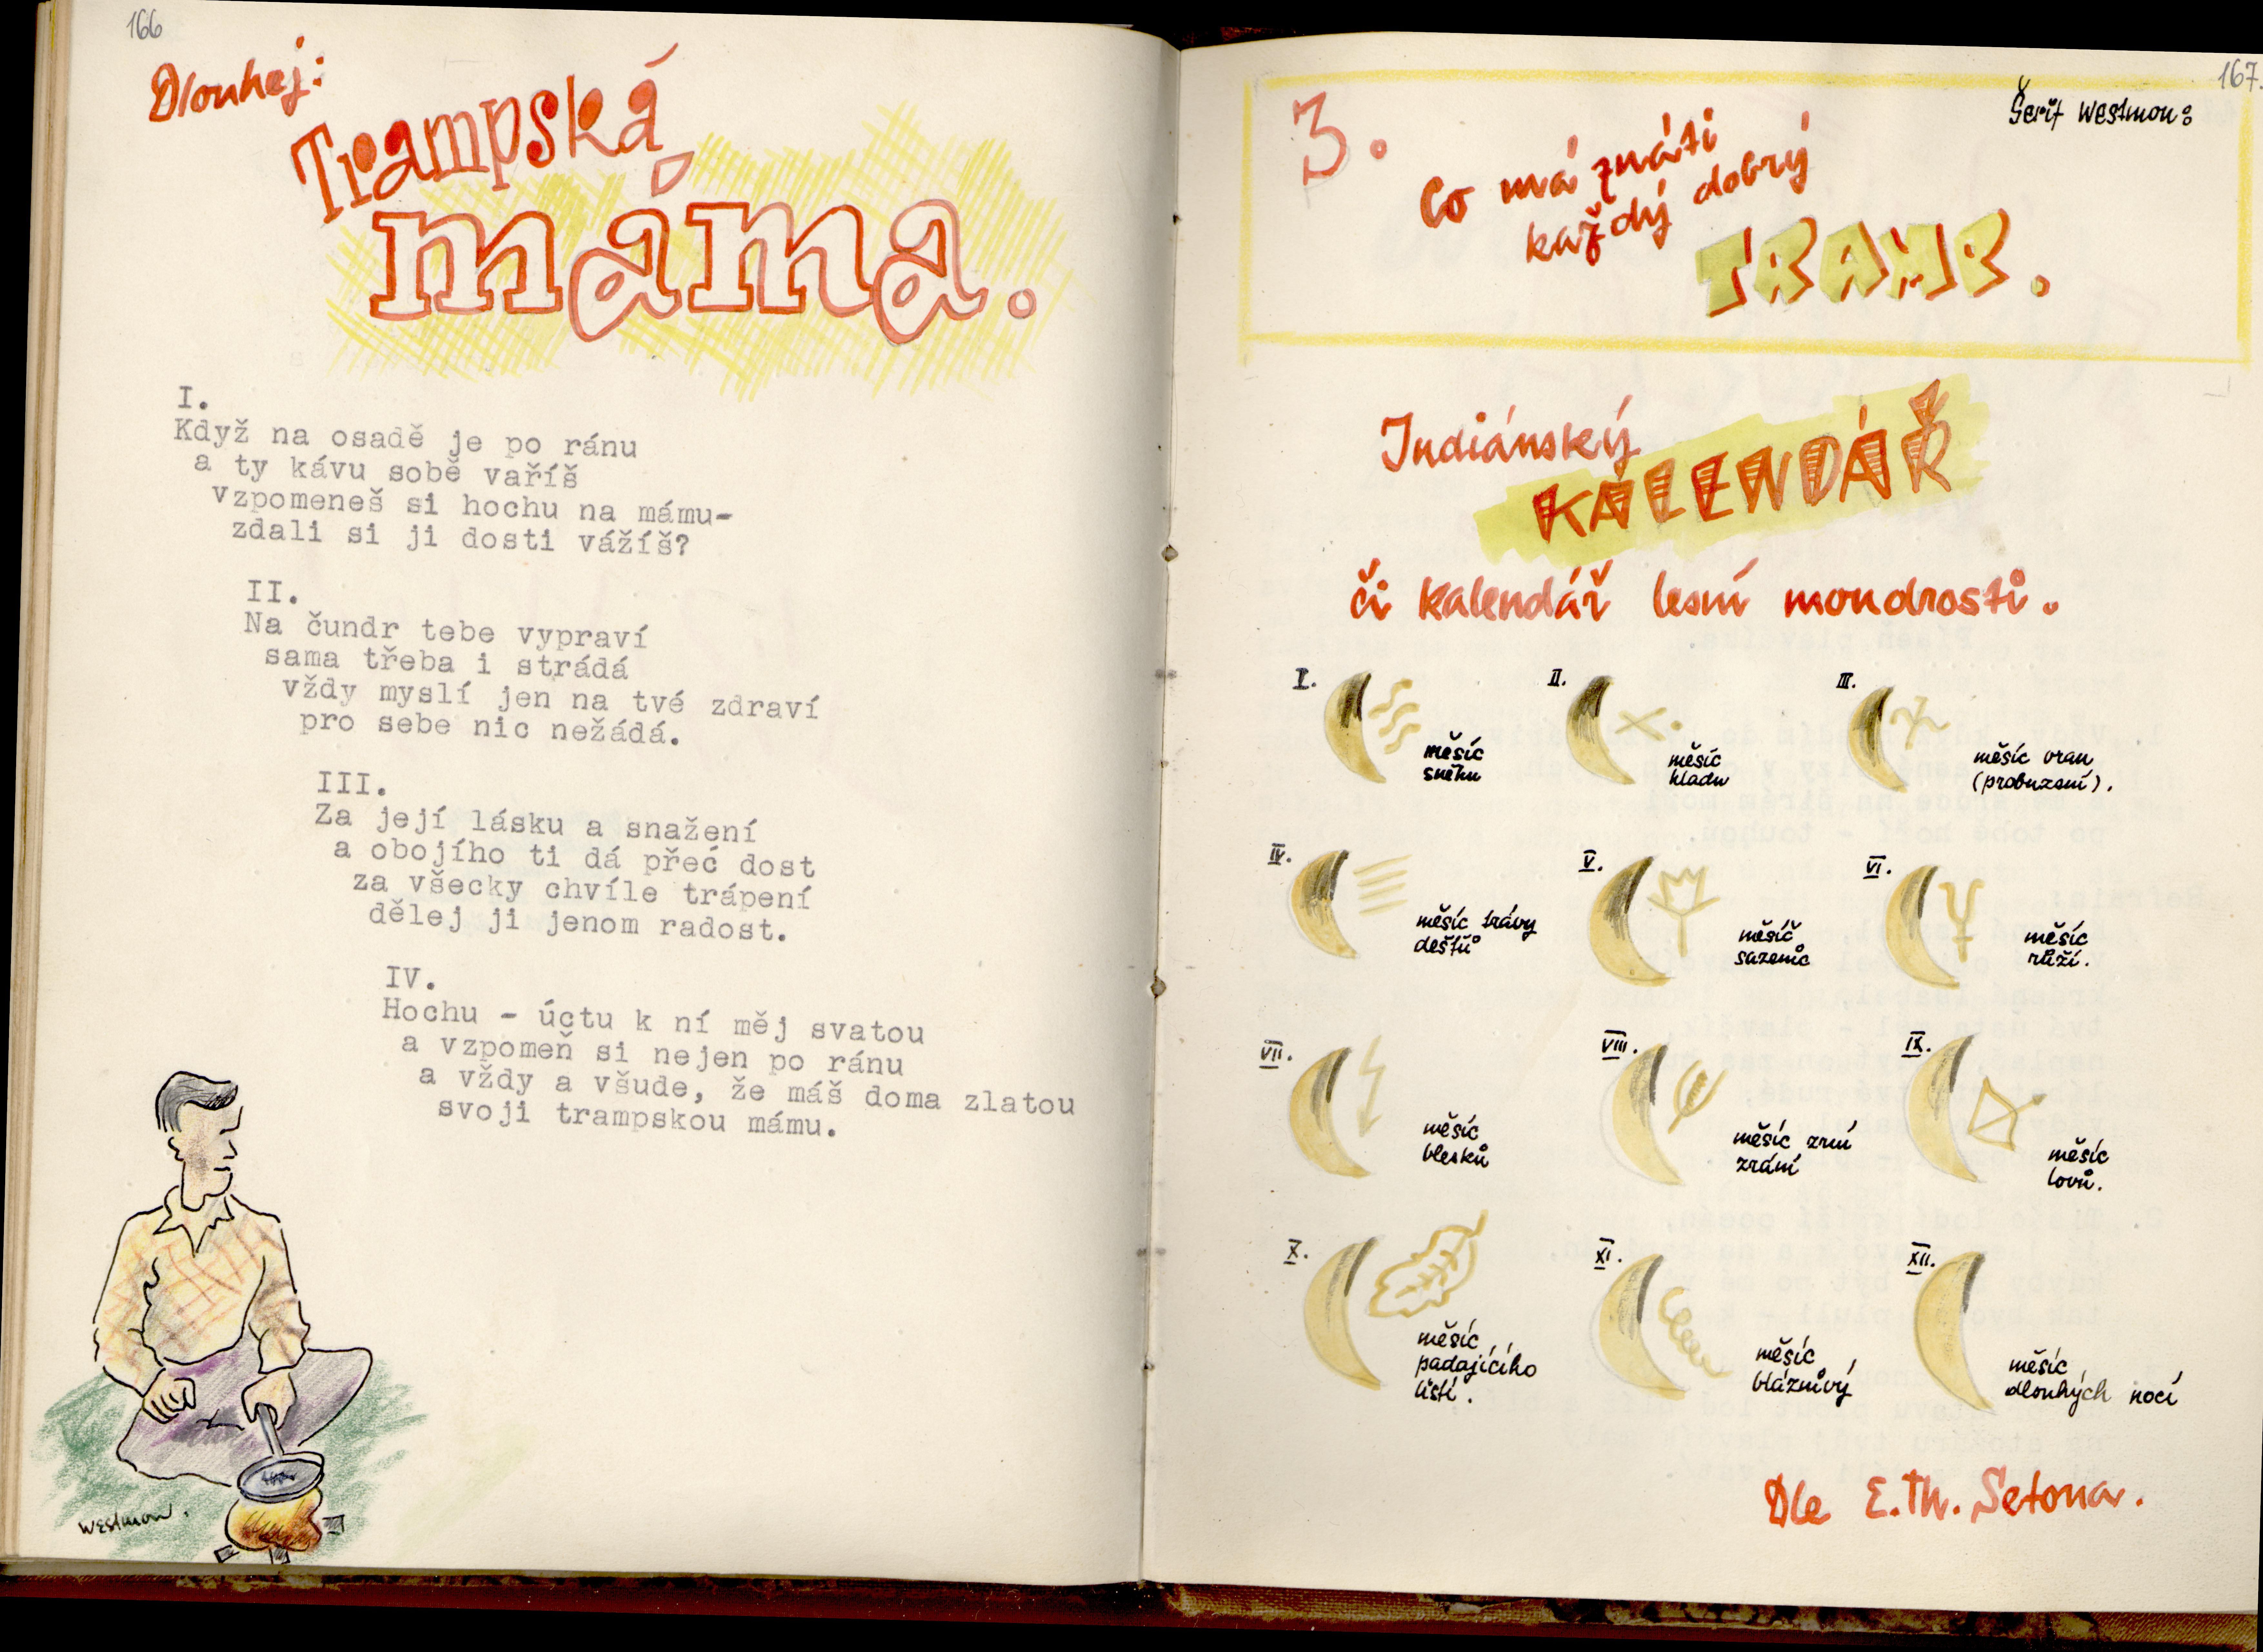 166
Dlouhej:
Trampská
máma.
I.
Když na osadě je po ránu
a ty kávu sobě vaříš
vzpomeneš si hochu na mámu-
zdali si ji dosti vážíš?
II.
Na čundr tebe vypraví
sama třeba i strádá
vždy myslí jen na tvé zdraví
pro sebe nic nežádá.
III.
Za její lásku a snažení
a obojího ti dá přeć dost
za všecky chvíle trápení
dělej ji jenom radost.
IV.
Hochu - úctu k ní měj svatou
a vzpomeň si nejen po ránu
a vždy a všude, že máš doma zlatou
svoji trampskou mámu.
Westmon.
167.
Šerif Westmon:
3.
Co má znáti
každý dobrý
TRAMP.
Indiánský
KALENDÁŘ
či kalendář lesní moudrosti.
I.
měsíc
sněhu
II.
měsíc
hladu
III.
měsíc vran
(probuzení).
IV.
měsíc trávy
dešťů
V.
měsíč
sazenic
VI.
měsíc
růží.
VII.
měsíc
blesků
VIII.
měsíc zrní
zrání
IX.
měsíc
lovů.
X.
měsíc
padajícího
listí.
XI.
měsíc
bláznivý
XII.
měsíc
dlouhých nocí
Dle E.Th. Setona.